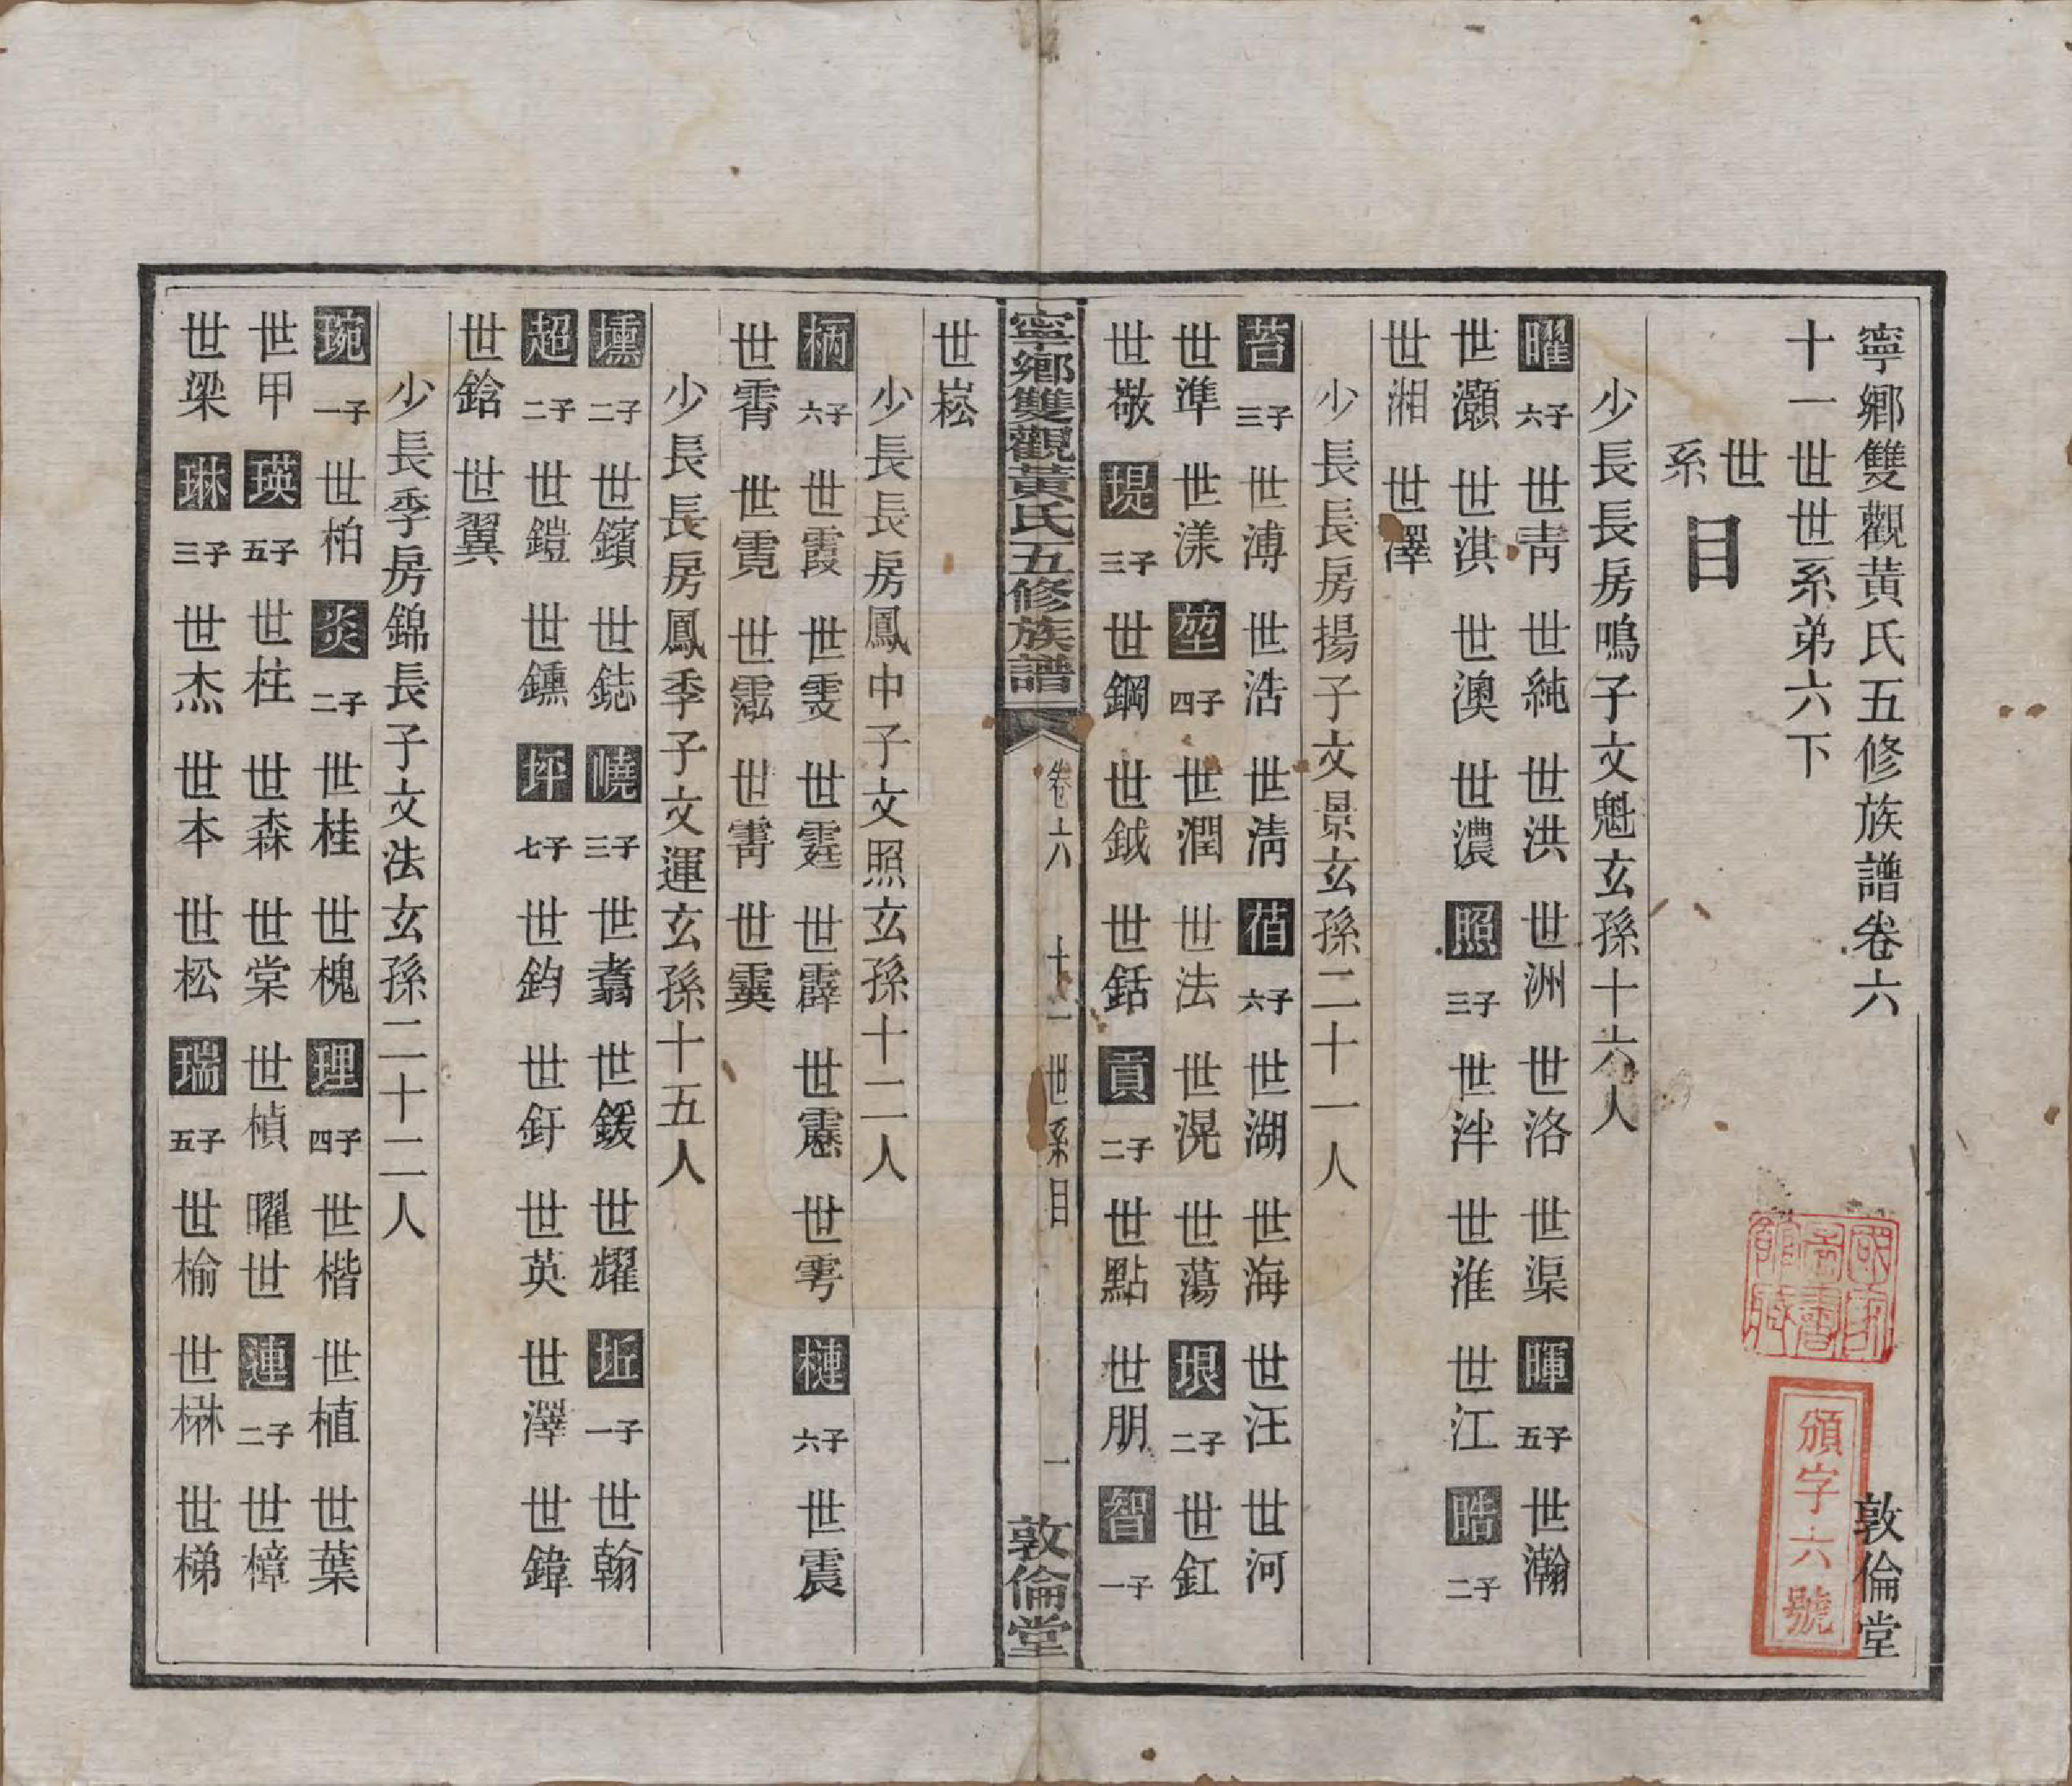 寧鄉雙觀黃氏五修族譜卷六
敦倫堂
十一世世系弟六下
世系目
少長長房鳴子文魁玄孫十六人
曜六子 世靑 世純 世洪 世洲 世洛 世渠 暉五子 世瀚
世灝 世淇 世澳 世濃 照三子 世泮 世淮 世江 晧二子
世湘 世澤
少長長房揚子文景玄孫二十一人
莟三子 世溥 世浩 世淸 萻六子 世湖 世海 世汪 世河
世準 世漾 堃四子 世潤 世法 世滉 世蕩 垠二子 世釭
世敬 堤三子 世鋼 世鉞 世銛 貢二子 世點 世朋 智一子
寧鄉雙觀黃氏五修族譜 卷六 十一世系目 一 敦倫堂
世崧
少長長房鳳中子文照玄孫十二人
柄六子 世霞 世雯 世霆 世霹 世 世雩 槤六子 世震
世霄 世霓 世 世 世霙
少長長房鳳季子文運玄孫十五人
壎二子 世鑌 世鋕 嶢三子 世翥 世鍰 世耀 坵一子 世翰
超二子 世鎧 世鑂 坪七子 世鈞 世釪 世英 世澤 世鍏
世鋡 世翼
少長季房錦長子文法玄孫二十二人
琬一子 世柏 炎二子 世桂 世槐 理四子 世楷 世植 世葉
世甲 瑛五子 世柱 世森 世棠 世楨 曜世 連二子 世樟
世梁 琳三子 世杰 世本 世松 瑞五子 世榆 世楙 世梯
國家圖書館藏
頒字六號